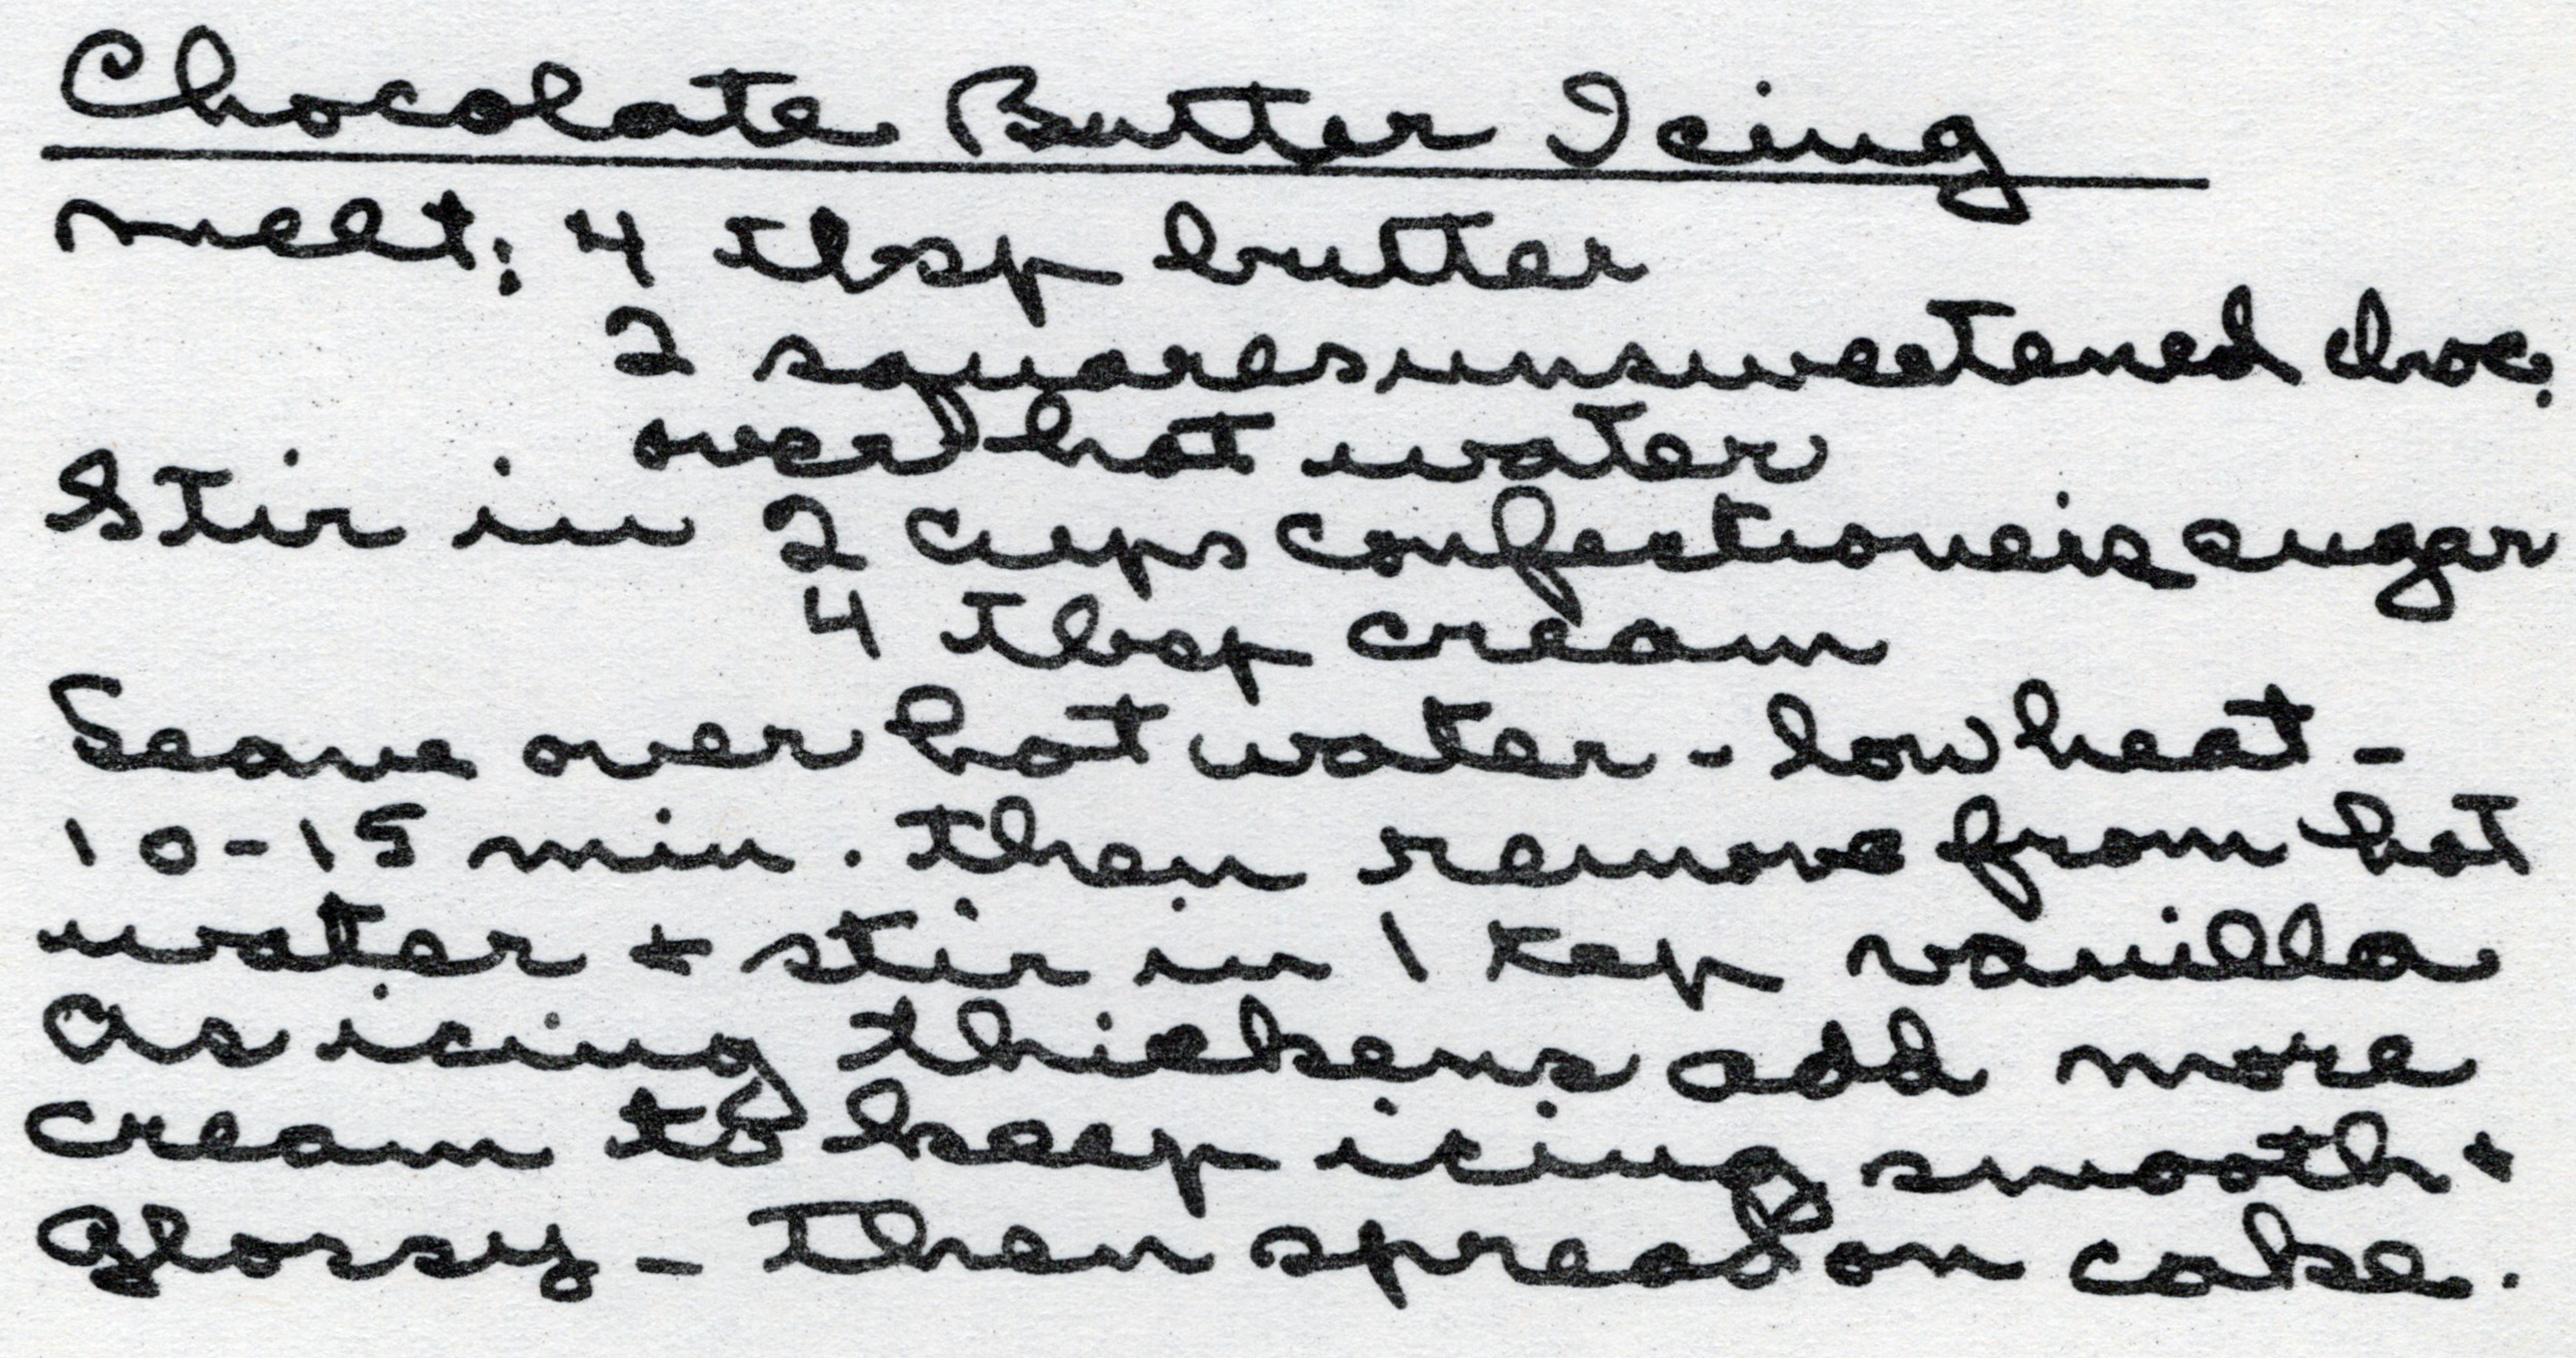 Chocolate Butter Icing
melt: 4 tbsp butter
2 squares unsweetened choc.
over hot water
Stir in 2 cups confectioners sugar
4 tbsp cream
Leave over hot water - low heat -
10-15 min. then remove from hot
water + stir in 1 tsp vanilla
As icing thickens add more
cream to keep icing smooth +
glossy - then spread on cake.